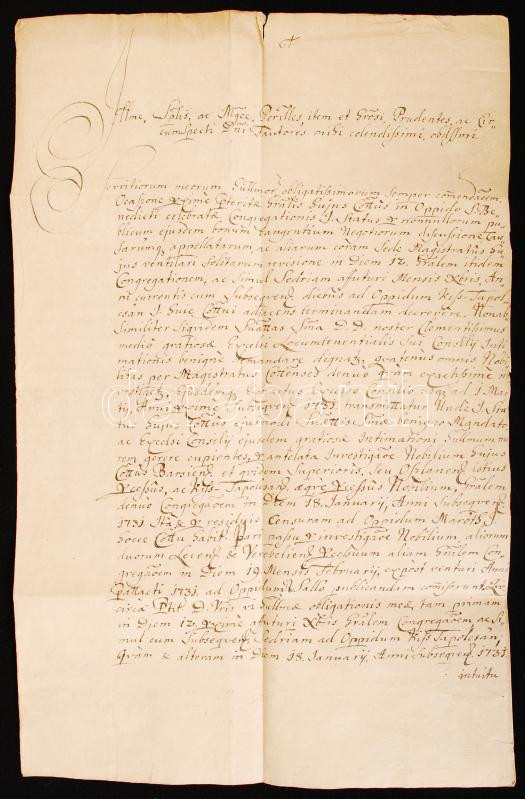 Illme, Sptis, ac Mgce, Perilles, item et Grosi, Prudentes, ac Cir-
cumspecti Dni Fautores mihi colendissimi, obdssmi.
Servitiorum meorum humllmor obligatissimorum semper comendaem
Ocasione proxime pterita Gralis hujus Cottus in Oppido S. Be-
nedicti celebrata Congregationis I. Status & nonnullorum pu-
blicum ejusdem bonum tangentium Negotiorum discusione Cau-
sarumq appellatarum ac aliarum coram Sede Magistratus hu-
jus ventilari solitarum revisione in Diem 12. Gralem itidem
Congregationem, ac Simul Sedriam affuturi Mensis Xbris, An-
ni currentis cum Subsequen diebus ad Oppidum Kiss-Tapol-
csan I. huic Cottui adjacens terminandam decrevere. Nonab-
Similiter Siquidem Suattas Sma D. D. noster Clementissimus
medio gratiosae Excelsi Locumtenentialis Sui Consilij Inti-
mationis benigne demandare dignat, quatenus omnis Nobi-
litas per Magistratus Cottenses denuo quam exactissime in-
vestiget, Ejusdemq Extractus Excelso Consilio usq ad 1 Mar-
tij Anni proxime Subsequen 1731. transmittatur Unde I. Sta-
tus hujus Cottus ejusmodi Suattis Smae benigno Mandato,
ac Excelsi Consilij ejusdem gratiosae Intimationi humllmum mo-
rem gerere cupientes, pantelata Investigaoe Nobilium hujus
Cottus Barsien et quidem Superioris, Seu Oslanen istius
Pcessus, ac Kiss Tapolcsan aeque Pcessus Nobilium, Gralem
denuo Congregaoem in Diem 18. Januarij, Anni Subsequen
1731 Ita & resolvis Censuram ad Oppidum Maroth I.
hocce Cottu habit Pari passu & investigaoe Nobilium, aliorum
duorum Leven & Verebelien Pcessuum aliam Gralem Con-
gregaoem in Diem 19. Mensis Februarij, expost venturi Anni
pattacti 1731. ad Oppidum Sallo publicandam comiserunt, Qu
circa Ptit. D. Vris vi humllmae obligationis meae, tam primam
in Diem 12. proxime affuturi Xbris Gralem Congregaoem, ac Si-
mul cum Subsequen Sedriam ad Oppidum Kiss Tapolcsan,
Quam & alteram in Diem 18. Januarij, Anni Subsequen 1731.
intuitu
darabanth